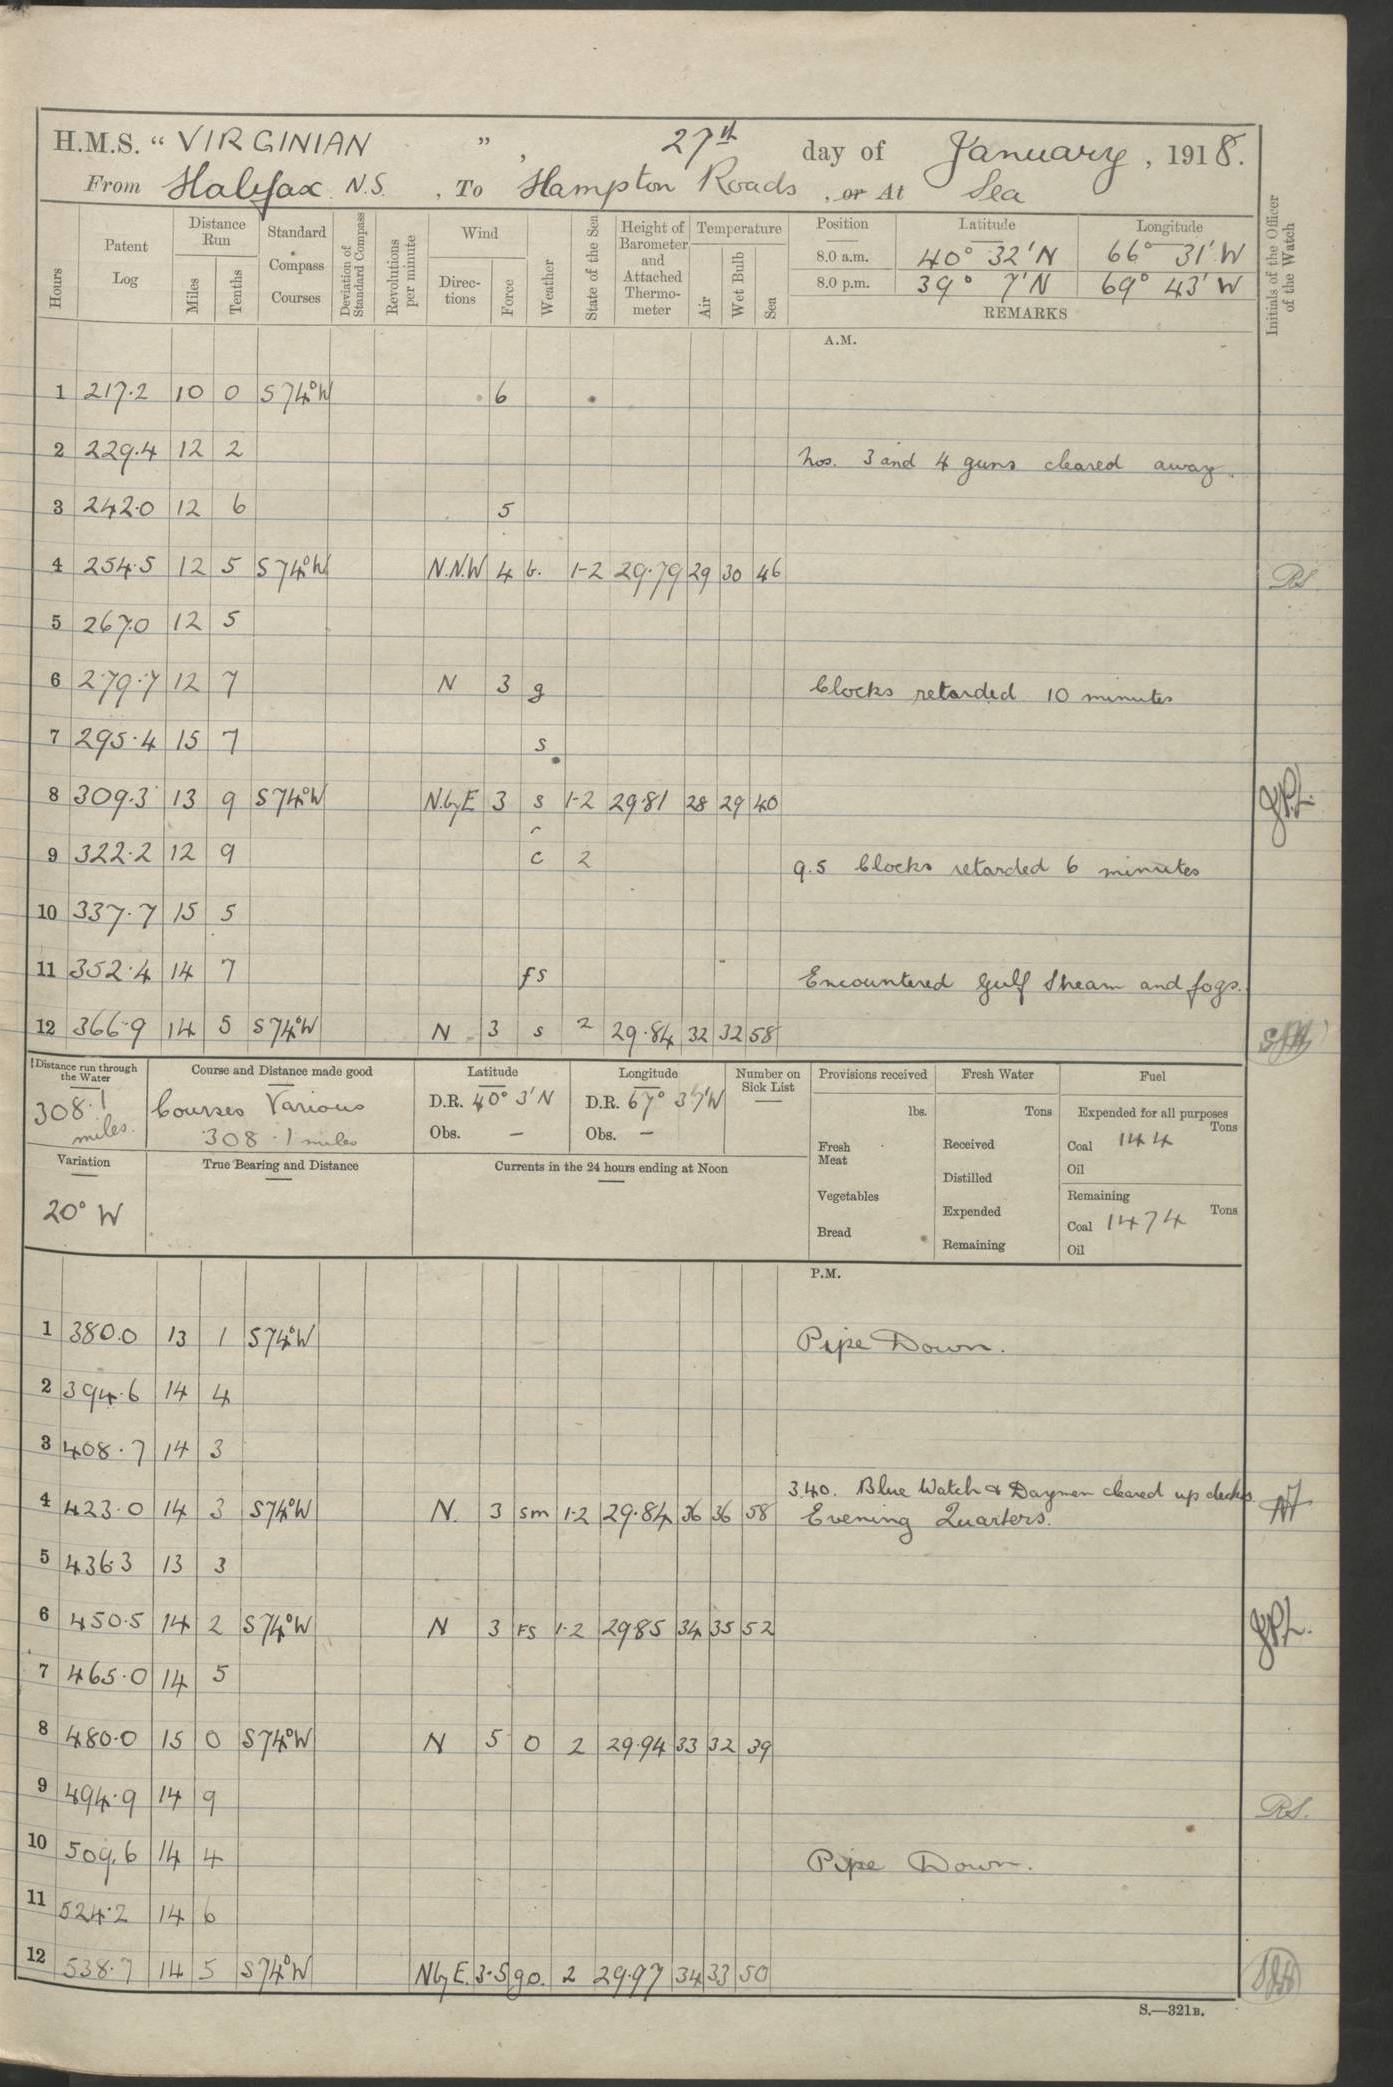 H.M.S. “ VIRGINIAN ” , 27th day of January , 1918.
From Halifax N.S. , To Hampton Roads , or At Sea
Hours
Patent Log
Distance Run
Miles
Tenths
Standard Compass Courses
Deviation of Standard Compass
Revolutions per minute
Wind
Direc-tions
Force
Weather
State of the Sea
Height of Barometer and Attached Thermo-meter
Temperature
Air
Wet Bulb
Sea
Position Latitude Longitude
8.0 a.m. 40° 32' N 66° 31' W
8.0 p.m. 39° 7' N 69° 43' W
REMARKS
Initials of the Officer of the Watch
A.M.
1 217.2 10 0 S 74° W 6
2 229.4 12 2 Nos. 3 and 4 guns cleared away.
3 242.0 12 6 5
4 254.5 12 5 S 74° W N.N.W 4 b. 1-2 29.79 29 30 46 RS
5 267.0 12 5
6 279.7 12 7 N 3 g Clocks retarded 10 minutes
7 295.4 15 7 s
8 309.3 13 9 S 74° W N.byE 3 s 1-2 29.81 28 29 40 JPL.
9 322.2 12 9 c 2 9.5 Clocks retarded 6 minutes
10 337.7 15 5
11 352.4 14 7 fs Encountered Gulf Stream and fogs.
12 366.9 14 5 S 74° W N 3 s 2 29.84 32 32 58
Distance run through the Water
308.1 miles.
Course and Distance made good
Courses Various
308.1 miles
Latitude
D.R. 40° 3' N
Obs. —
Longitude
D.R. 67° 37' W
Obs. —
Number on Sick List
Provisions received
lbs.
Fresh Meat
Vegetables
Bread
Fresh Water
Tons
Received
Distilled
Expended
Remaining
Fuel
Expended for all purposes
Tons
Coal 144
Oil
Remaining
Tons
Coal 1474
Oil
Variation
20° W
True Bearing and Distance
Currents in the 24 hours ending at Noon
P.M.
1 380.0 13 1 S 74° W Pipe Down.
2 394.6 14 4
3 408.7 14 3
3.40. Blue Watch & Daymen cleared up decks.
4 423.0 14 3 S 74° W N. 3 sm 1-2 29.84 36 36 58 Evening Quarters.
5 436.3 13 3
6 450.5 14 2 S 74° W N 3 FS 1-2 29.85 34 35 52 JPL.
7 465.0 14 5
8 480.0 15 0 S 74° W N 5 O 2 29.94 33 32 39
9 494.9 14 9 RS.
10 509.6 14 4 Pipe Down.
11 524.2 14 6
12 538.7 14 5 S 74° W NbyE. 3-5 go. 2 29.97 34 33 50
S.—321B.